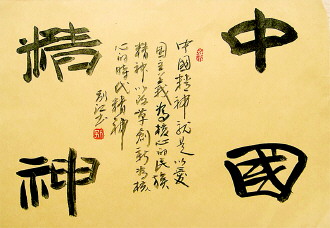 中國
精神
中國精神就是以愛
国主義為核心的民族
精神以改革創新為核
心的時代精神